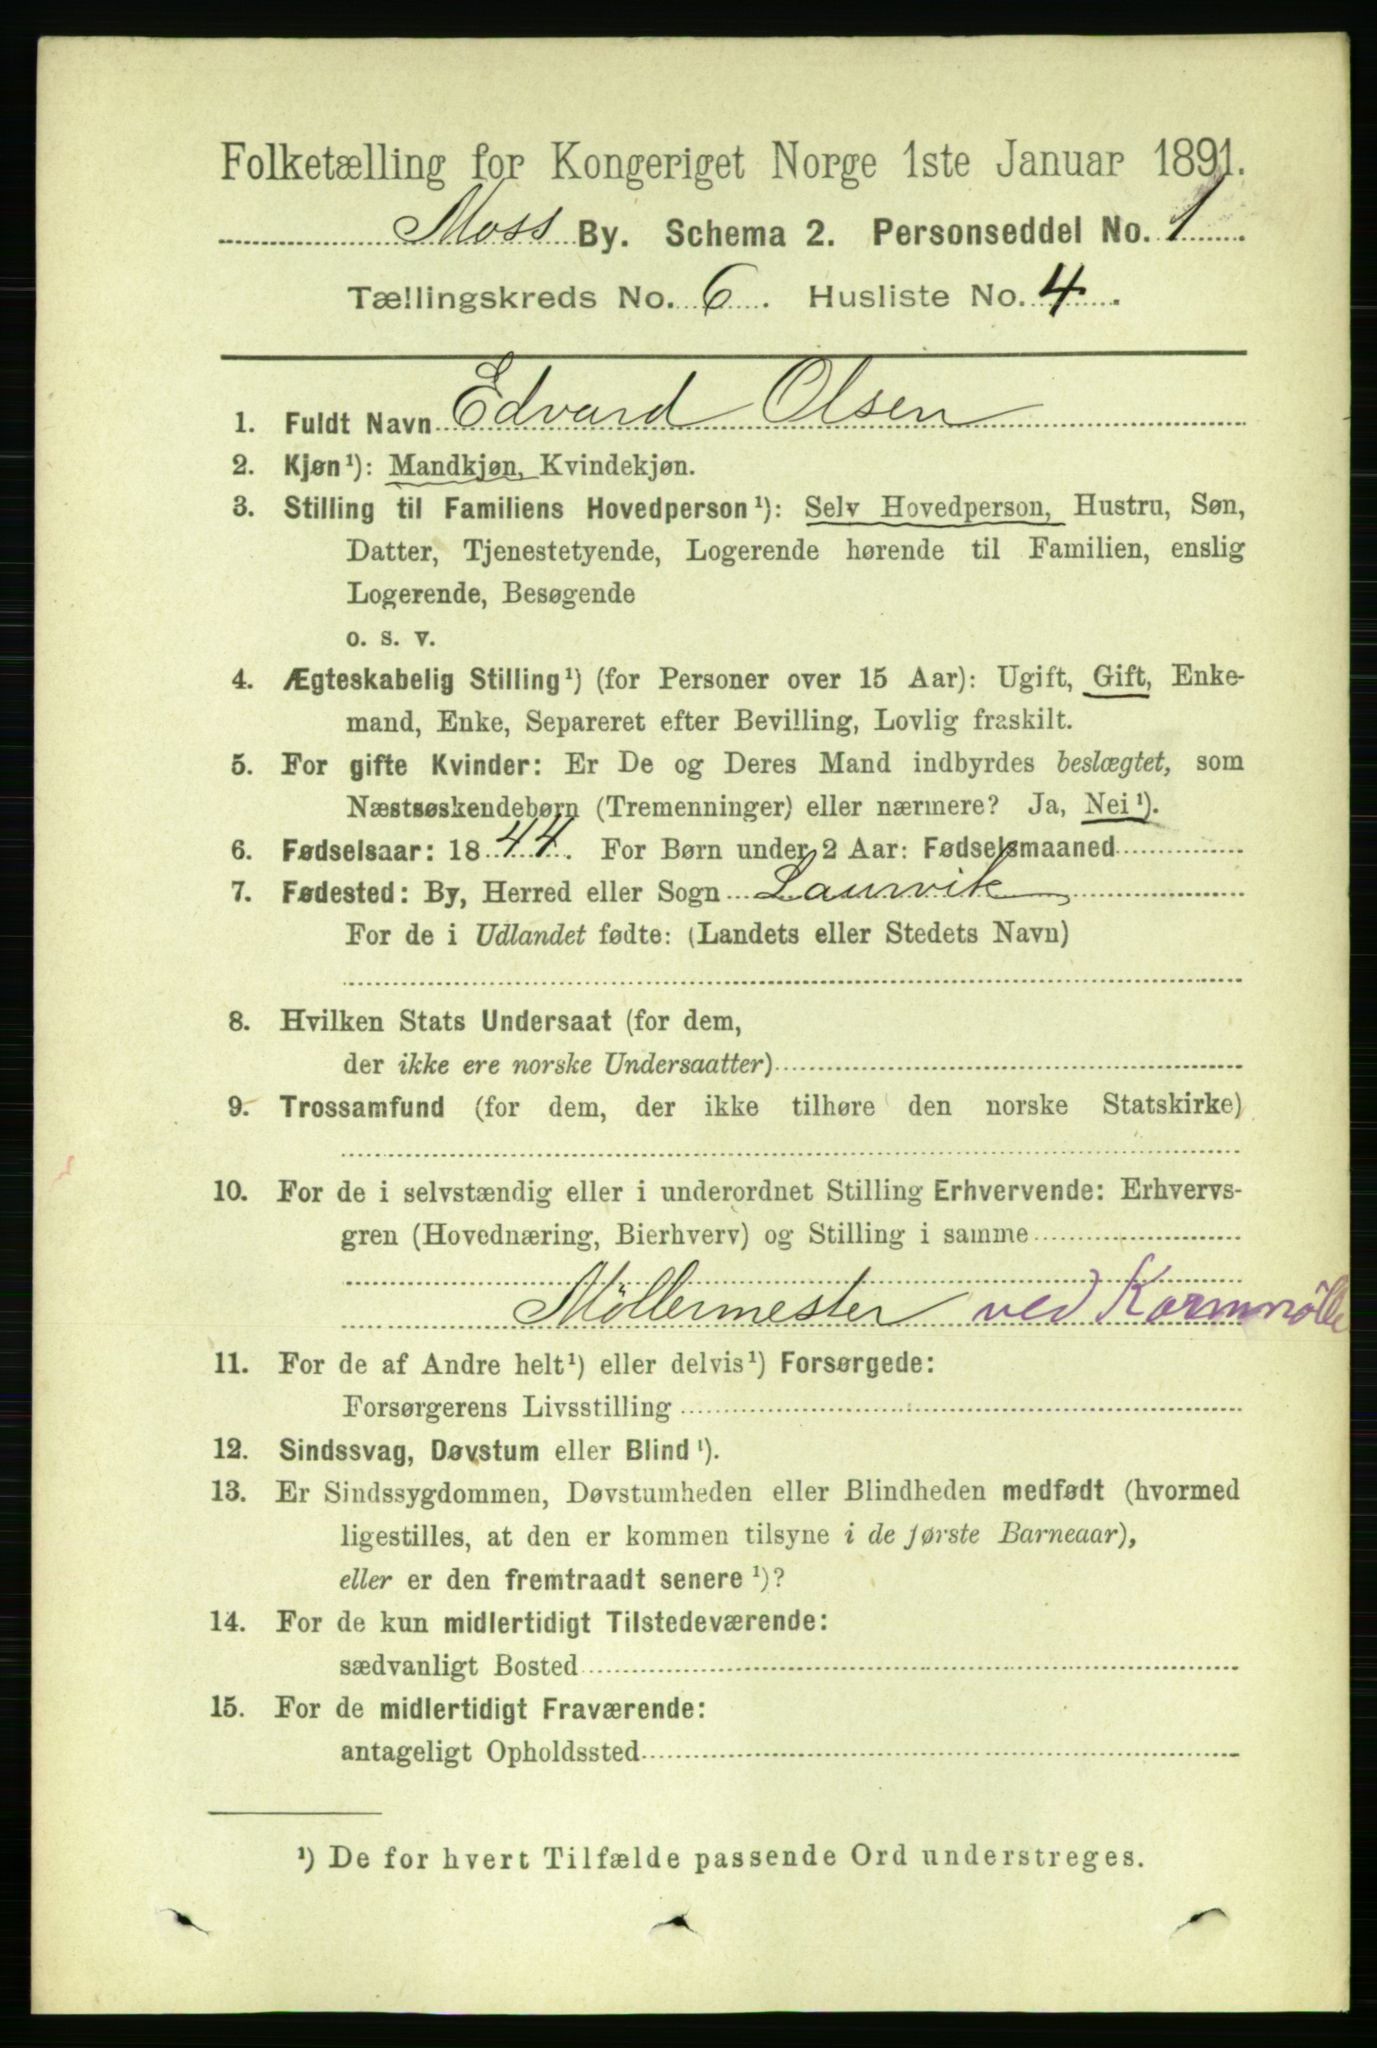 Folketælling for Kongeriget Norge 1ste Januar 1891.
Moss By. Schema 2. Personseddel No. 1
Tællingskreds No. 6. Husliste No. 4.
1. Fuldt Navn Edvard Olsen
2. Kjøn¹): Mandkjøn, Kvindekjøn.
3. Stilling til Familiens Hovedperson¹): Selv Hovedperson, Hustru, Søn,
Datter, Tjenestetyende, Logerende hørende til Familien, enslig
Logerende, Besøgende
o. s. v.
4. Ægteskabelig Stilling¹) (for Personer over 15 Aar): Ugift, Gift, Enke-
mand, Enke, Separeret efter Bevilling, Lovlig fraskilt.
5. For gifte Kvinder: Er De og Deres Mand indbyrdes beslægtet, som
Næstsøskendebørn (Tremenninger) eller nærmere? Ja, Nei¹).
6. Fødselsaar: 1844. For Børn under 2 Aar: Fødselsmaaned
7. Fødested: By, Herred eller Sogn Laurvik
For de i Udlandet fødte: (Landets eller Stedets Navn)
8. Hvilken Stats Undersaat (for dem,
der ikke ere norske Undersaatter)
9. Trossamfund (for dem, der ikke tilhøre den norske Statskirke)
10. For de i selvstændig eller i underordnet Stilling Erhvervende: Erhvervs-
gren (Hovednæring, Bierhverv) og Stilling i samme
Möllermester ved Kornmölle
11. For de af Andre helt¹) eller delvis¹) Forsørgede:
Forsørgerens Livsstilling
12. Sindssvag, Døvstum eller Blind¹).
13. Er Sindssygdommen, Døvstumheden eller Blindheden medfødt (hvormed
ligestilles, at den er kommen tilsyne i de første Barneaar),
eller er den fremtraadt senere¹)?
14. For de kun midlertidigt Tilstedeværende:
sædvanligt Bosted
15. For de midlertidigt Fraværende:
antageligt Opholdssted
¹) De for hvert Tilfælde passende Ord understreges.